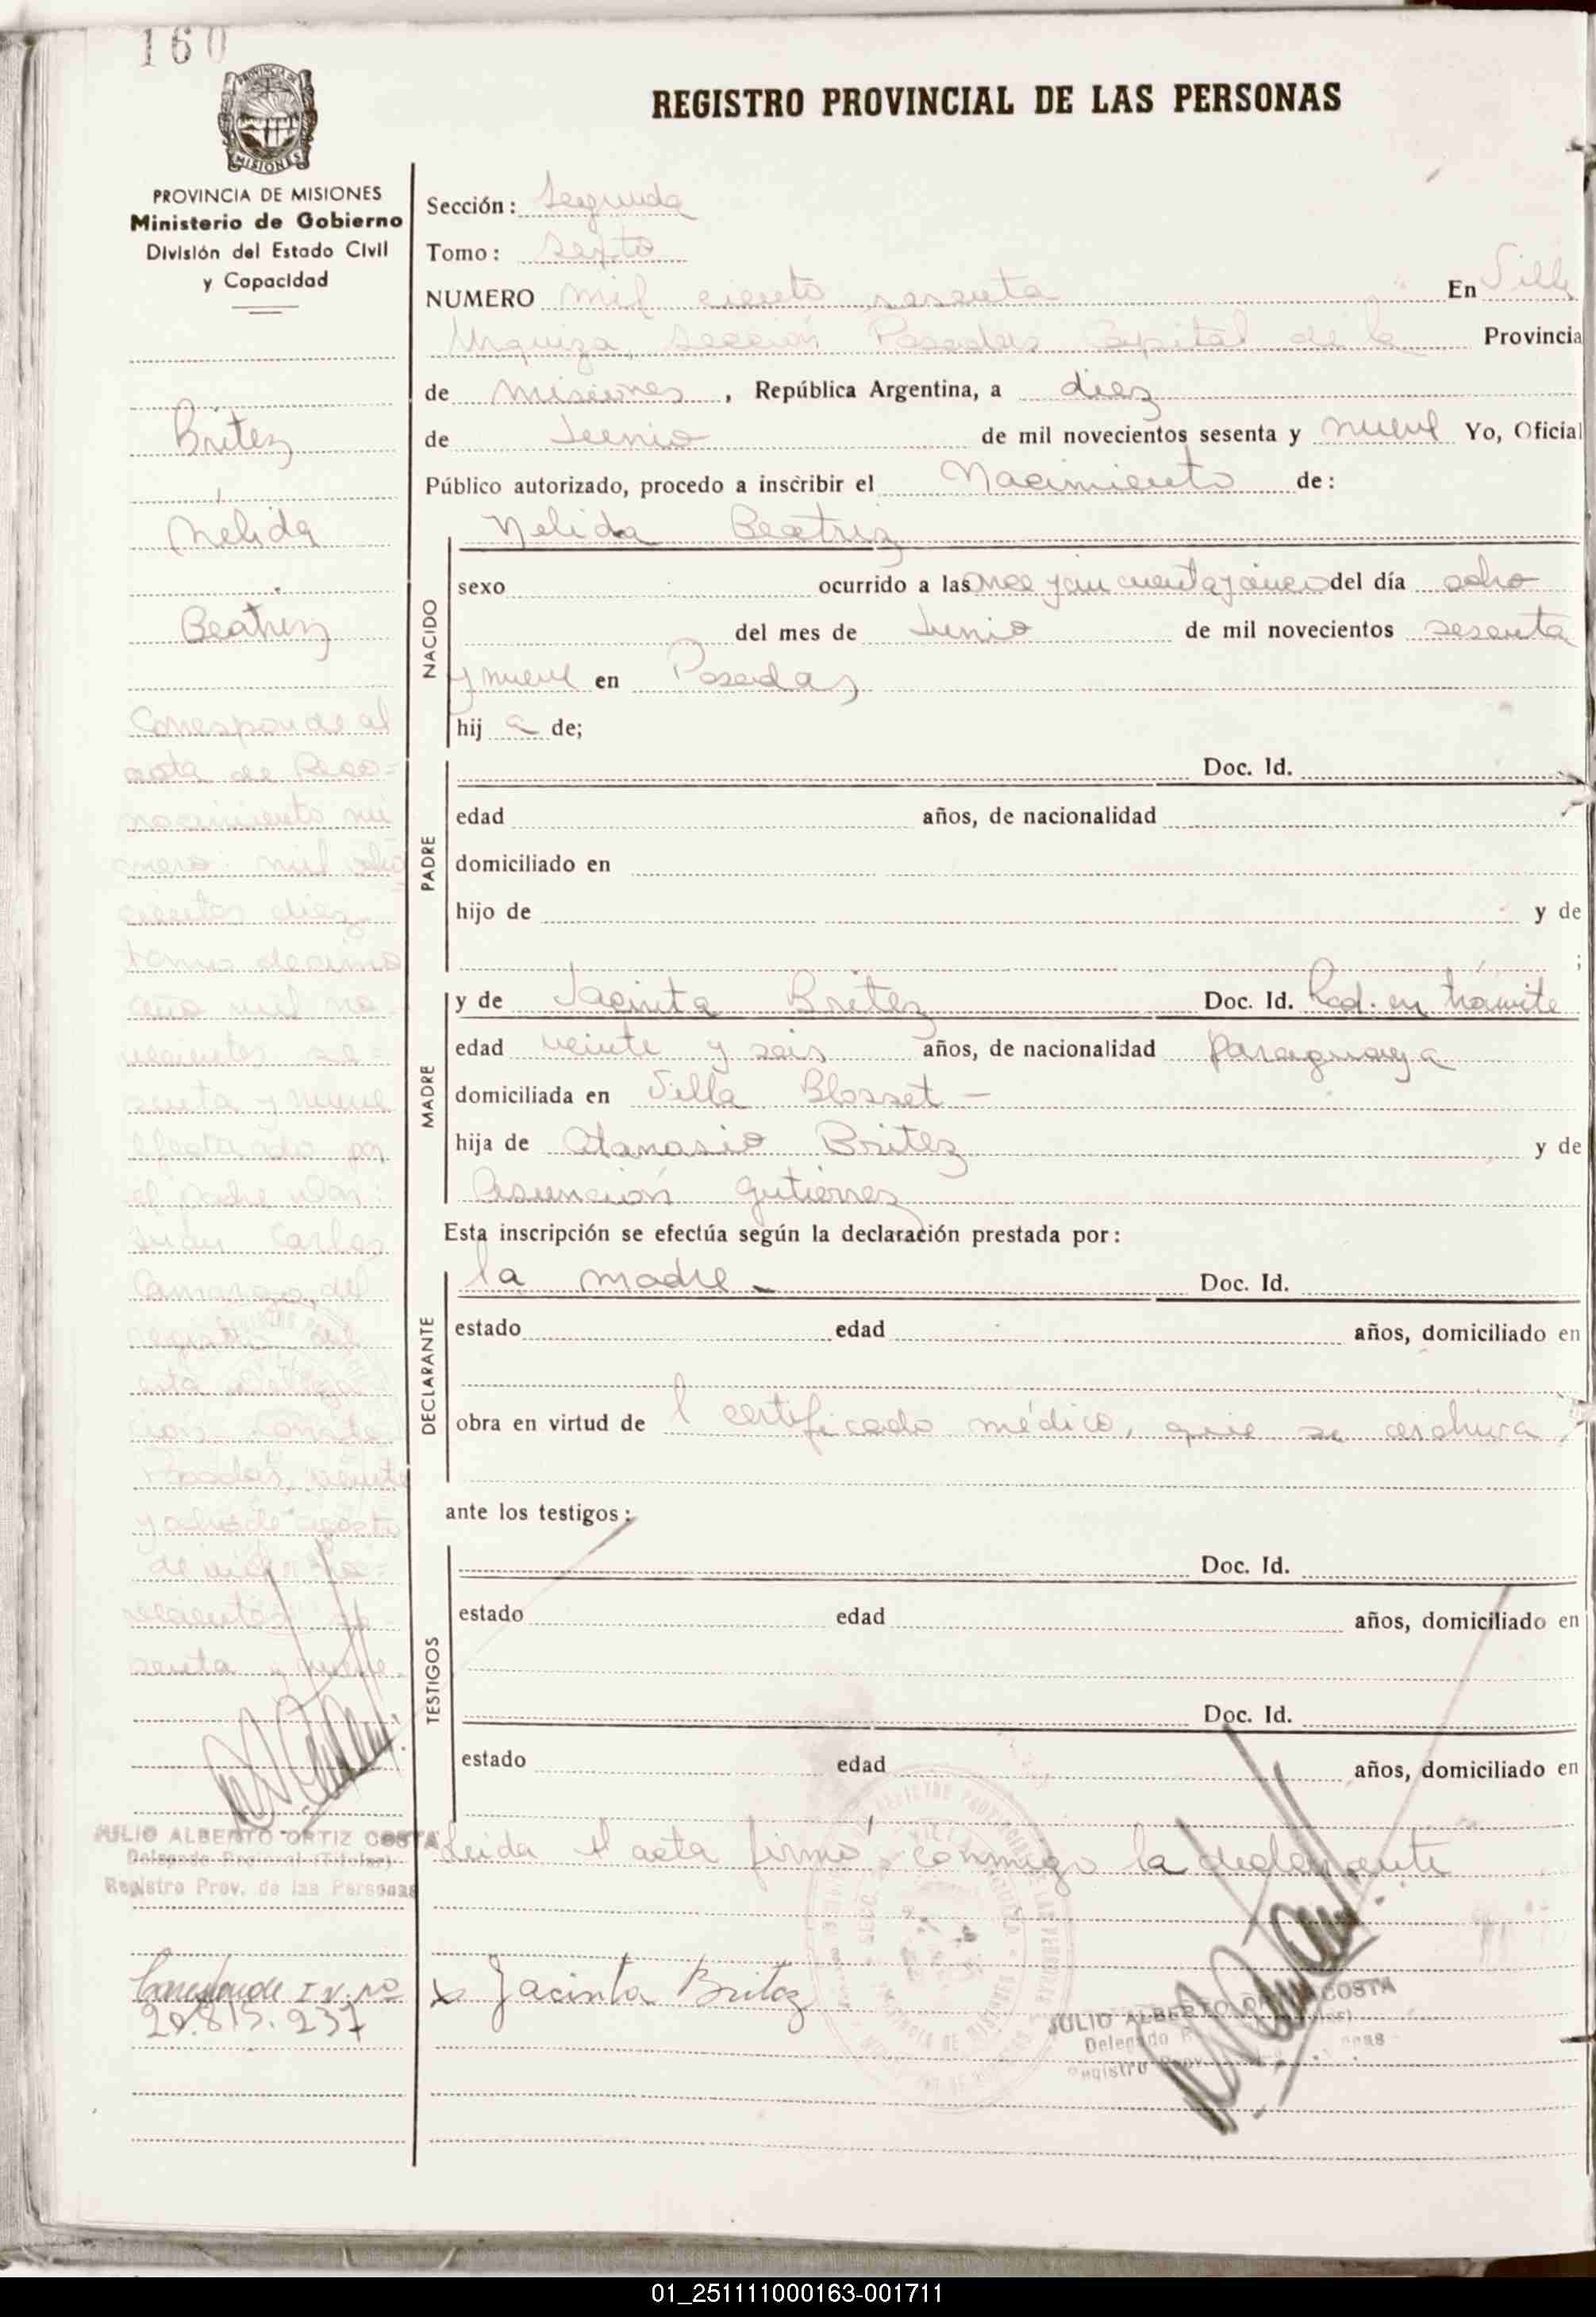 160
PROVINCIA DE MISIONES
Ministerio de Gobierno
División del Estado Civil
y Capacidad
Britez
Nélida
Beatriz
Corresponde al
acta de Reco=
nocimiento nú
mero: mil ocho
cientos diez
tomo decimo
año mil no-
vecientos se=
senta y nueve
efectuado por
el padre
Juan Carlos
Camargo, del
registro del
esta delega
ción. Conste
Posadas, veinte
y ocho de agosto
de mil no=
vecientos se
senta y nueve.
JULIO ALBERTO ORTIZ COSTA
Delegado Provincial (Titular)
Registro Prov. de las Personas
Corresponde I.N. Nº
20.815.237
REGISTRO PROVINCIAL DE LAS PERSONAS
Sección: Segunda
Tomo: sexto
NUMERO mil ciento sesenta En Villa
Urquiza, Sección Posadas Capital de la Provincia
de Misiones, República Argentina, a diez
de Junio de mil novecientos sesenta y nueve Yo, Oficial
Público autorizado, procedo a inscribir el Nacimiento de:
Nelida Beatriz
NACIDO
sexo ocurrido a las once y cincuenta y cinco del día ocho
del mes de Junio de mil novecientos sesenta
y nueve en Posadas
hij a de;
PADRE
Doc. Id.
edad años, de nacionalidad
domiciliado en
hijo de y de
;
MADRE
y de Jacinta Britez Doc. Id. Rad. en trámite
edad veinte y seis años, de nacionalidad paraguaya
domiciliada en Villa Blosset -
hija de Atanasio Britez y de
Asunción Gutierrez
Esta inscripción se efectúa según la declaración prestada por:
DECLARANTE
la madre Doc. Id.
estado edad años, domiciliado en
obra en virtud de l certificado médico, que se archiva
ante los testigos:
TESTIGOS
Doc. Id.
estado edad años, domiciliado en
Doc. Id.
estado edad años, domiciliado en
Leida el acta firmó conmigo la declarante
x Jacinta Britez
JULIO ALBERTO COSTA
Delegado
Registro
01_251111000163-001711